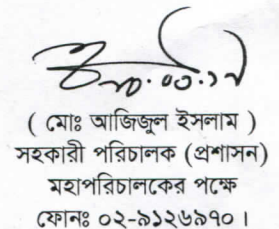 ( মোঃ আজিজুল ইসলাম )
সহকারী পরিচালক (প্রশাসন)
মহাপরিচালকের পক্ষে
ফোনঃ ০২-৯১২৬৯৭০।